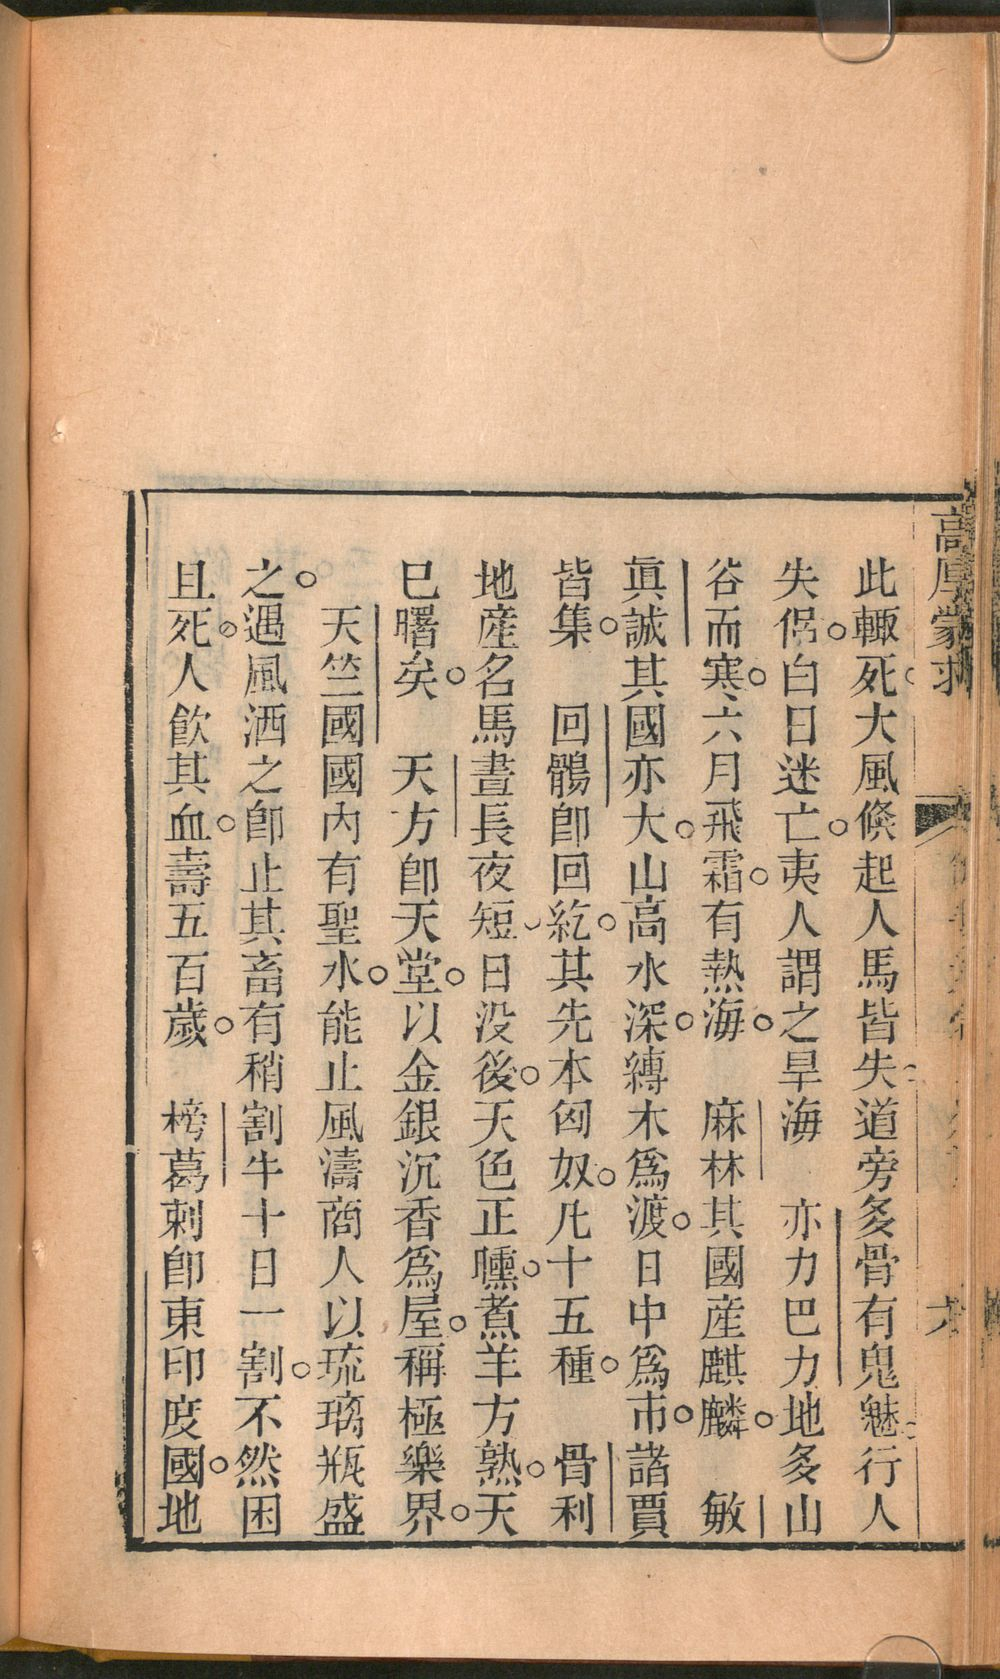 高厚蒙求
此輙死。大風倏起人馬皆失道旁多骨有鬼魅。行人
失侶。白日迷亡。夷人謂之旱海　亦力巴力地多山
谷而寒。六月飛霜。有熱海。　麻林其國産麒麟。　敏
眞誠其國亦大。山高水深。縛木爲渡。日中爲市。諸賈
皆集。　回鶻卽回紇。其先本匈奴。凡十五種。　骨利
地産名馬晝長夜短、日没後。天色正曛。煮羊方熟。天
巳曙矣。　天方卽天堂。以金銀沉香爲屋。稱極樂界。
天竺國國内有聖水。能止風濤商人以琉璃瓶盛
之。遇風洒之卽止其畜有稍割牛十日一割。不然困
且死。人飮其血。壽五百歲。　榜葛剌卽東印度國。地